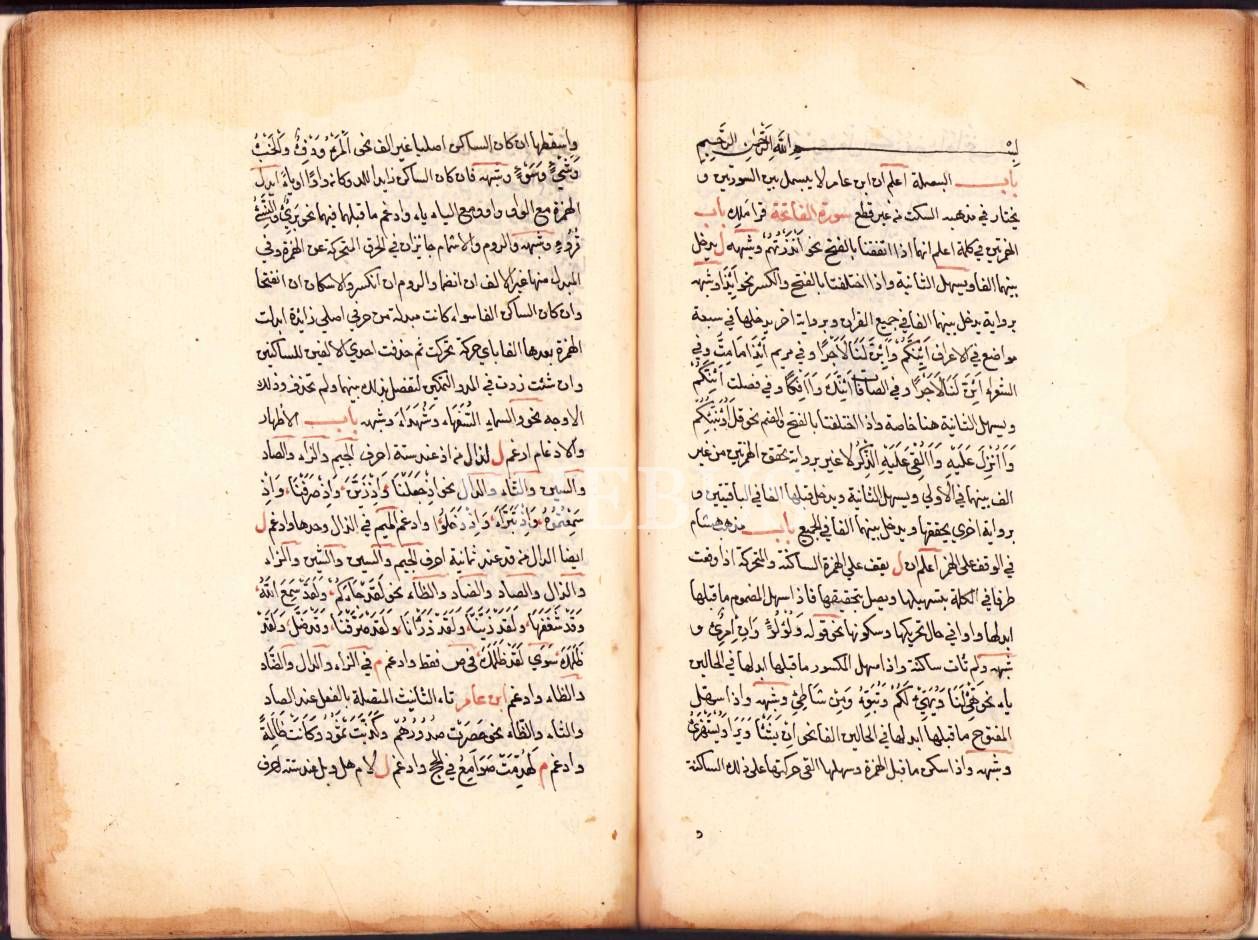 بسم الله الرحمن الرحيم
باب البسملة اعلم ان ابن عامر لا يبسمل بين السورتين و
يختار في مذهبه السكت من غير قطع سورة الفاتحة قرا ملك باب
الهمزتين في كلمة اعلم انهما اذا اتفقتا بالفتح نحو أَنْذَرْتَهُمْ وشبهه ل يدخل
بينهما الفا ويسهل الثانية واذا اختلفتا بالفتح والكسر نحو أَئِذَا وشبهه
برواية يدخل بينهما الفا في جميع القران وبرواية اخر يدخلها في سبعة
مواضع في الاعراف أَئِنَّكُمْ وَأَئِنَّ لَنَا لَأَجْرًا وفي مريم أَئِذَا مَا مِتُّ وفي
الشعراء أَئِنَّ لَنَا لَأَجْرًا وفي الصافات أَئِنَّكَ وَأَئِفْكًا وفي فصلت أَئِنَّكُمْ
ويسهل الثانية هنا خاصة واذا اختلفتا بالفتح والضم نحو قل أَؤُنَبِّئُكُمْ
وَأَأُنْزِلَ عَلَيْهِ وَأَأُلْقِيَ عَلَيْهِ الذِّكْرُ لا غير برواية يحقق الهمزتين من غير
الف بينهما في الاولي ويسهل الثانية ويدخل قبلها الفا في الباقيتين و
برواية اخري يحققها ويدخل بينهما الفا في الجميع باب مذهب هشام
في الوقف على الهمز اعلم ان ل يقف علي الهمزة الساكنة والمتحركة اذا وقعت
طرفا في الكلمة بتسهيلها ويصل بتحقيقها فاذا سهل المضموم ما قبلها
ابدلها واوا في حال تحريكها وسكونها نحو قوله وَلُؤْلُؤٌ وَإِنِ امْرُؤٌ و
شبهه ولم تات ساكنة واذا سهل المكسور ما قبلها ابدلها في الحالين
ياء نحو هَيِّئْ لَنَا وَيُهَيِّئْ لَكُمْ وَمِنْ شَاطِئِ وشبهه واذا سهل
المفتوح ما قبلها ابدلها في الحالين الفا نحو إِنْ يَشَأْ وَيَسْتَهْزِئُ
وشبهه واذا سكن ما قبل الهمزة وسهلها القى حركتها على ذلك الساكنة
و اسقطها ان كان الساكن اصليا غير الف نحو الْمَرْءِ وَدِفْءٌ وَالْخَبْءَ
وَشَيْءٍ وَسُوْءٍ وشبهه فان كان الساكن زايدا للمد وكان واوا او ياء ابدل
الهمزة مع الواو واوا ومع الياء ياء وادغم ما قبلها فيها نحو بَرِيءٌ وَالنَّسِيءُ
قُرُوءٍ وشبهه والروم والاشمام جايزان في الحرف المتحركة عن الهمزة وفي
المبدل منها غير الالف ان انضما والروم ان انكسر والاسكان ان انفتحا
وان كان الساكن الفا سواء كانت مبدلة من حرف اصلي زايدة ابدلت
الهمزة بعدها الفا باي حركة تحركت ثم حذفت احدي الالفين للساكنين
وان شئت زدت في المد والتمكين لتفصل بذلك بينهما ولم تحذف وذلك
الاوجه نحو والسماء السُّفَهَاءُ وَشُهَدَاءَ وشبهه باب الاظهار
والادغام ادغم ل الذال من اذ عند ستة احرف الجيم والزاء والصاد
والسين والتاء والدال نحو إِذْ جَعَلْنَا وَإِذْ زَيَّنَ وَإِذْ صَرَفْنَا وَإِذْ
سَمِعْتُمُوهُ وَإِذْ تَبَرَّأَ وَإِذْ دَخَلُوا وادغم الميم في الدال وحدها وادغم ل
ايضا الدال من قد عند ثمانية احرف الجيم والسين والشين والزاء
والذال والصاد والضاد والظاء نحو لَقَدْ جَاءَكُمْ وَلَقَدْ سَمِعَ اللَّهُ
وَقَدْ شَغَفَهَا وَلَقَدْ زَيَّنَّا وَلَقَدْ ذَرَأْنَا وَلَقَدْ صَرَّفْنَا وَقَدْ ضَلَّ وَلَقَدْ
ظَلَمَكَ سوي لَقَدْ ظَلَمَكَ في ص فقط وادغم م في الزاء والذال والضاد
والظاء وادغم ابن عامر تاء التانيث المتصلة بالفعل عند الصاد
والثاء والظاء نحو حَصِرَتْ صُدُورُهُمْ وكَذَّبَتْ ثَمُودُ وكَانَتْ ظَالِمَةً
وادغم م لَهُدِّمَتْ صَوَامِعُ في الحج وادغم ل لام هل وبل عند ستة احرف